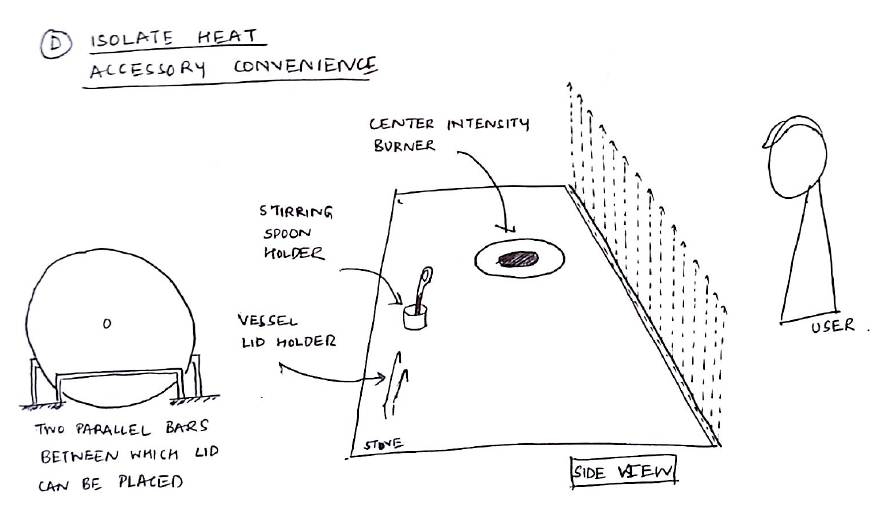 D ISOLATE HEAT
ACCESSORY CONVENIENCE
CENTER INTENSITY
BURNER
STIRRING
SPOON
HOLDER
VESSEL
LID HOLDER
TWO PARALLEL BARS
BETWEEN WHICH LID
CAN BE PLACED
STOVE
SIDE VIEW
USER.